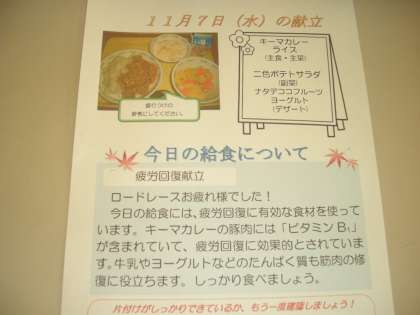 11月7日（水）の献立
キーマカレー
ライス
（主食・主菜）
二色ポテトサラダ
（副菜）
ナタデココフルーツ
ヨーグルト
（デザート）
盛り つけの
参考にしてください。
今日の給食について
疲労回復献立
ロードレースお疲れ様でした！
今日の給食には、疲労回復に有効な食材を使って
います。キーマカレーの豚肉には「ビタミンB₁」
が含まれていて、疲労回復に効果的とされていま
す。牛乳やヨーグルトなどのたんぱく質も筋肉の修
復に役立ちます。しっかり食べましょう。
片付けがしっかりできているか、もう一度確認しましょう！